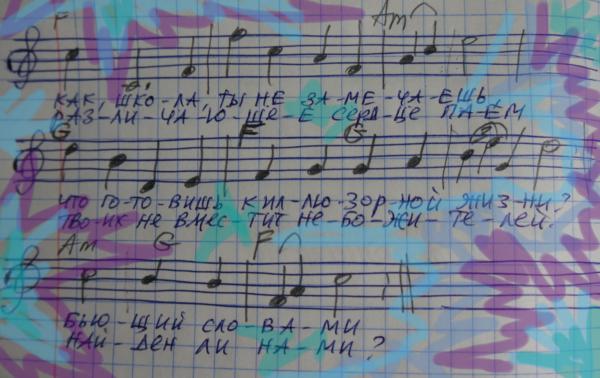 F Am
КАК, ШКО-ЛА, ТЫ НЕ ЗА-МЕ-ЧА-ЕШЬ,
РАЗ-ЛИ-ЧА-Ю-ЩЕ-Е СЕРД-ЦЕ ПА-ЕМ
G F G
ЧТО ГО-ТО-ВИШЬ К ИЛ-ЛЮ-ЗОР-НОЙ ЖИЗ-НИ?
ТВО-ИХ НЕ ВМЕС-ТИТ НЕ-БО-ЖИ-ТЕ-ЛЕЙ.
Am G F
БЬЮ-ЩИЙ СЛО-ВА-МИ
НАЙ-ДЕН ЛИ НА-МИ?